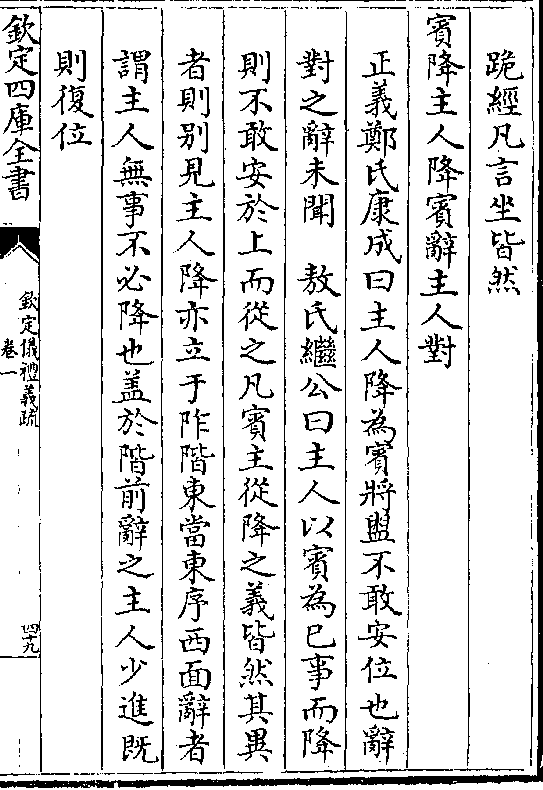 跪經凡言坐皆然
賓降主人降賓辭主人對
正義鄭氏康成曰主人降為賓將盥不敢安位也辭
對之辭未聞　敖氏繼公曰主人以賓為已事而降
則不敢安於上而從之凡賓主從降之義皆然其異
者則别見主人降亦立于阼階東當東序西面辭者
謂主人無事不必降也盖於階前辭之主人少進既
則復位
欽定四庫全書
欽定儀禮義疏
卷一
四十九